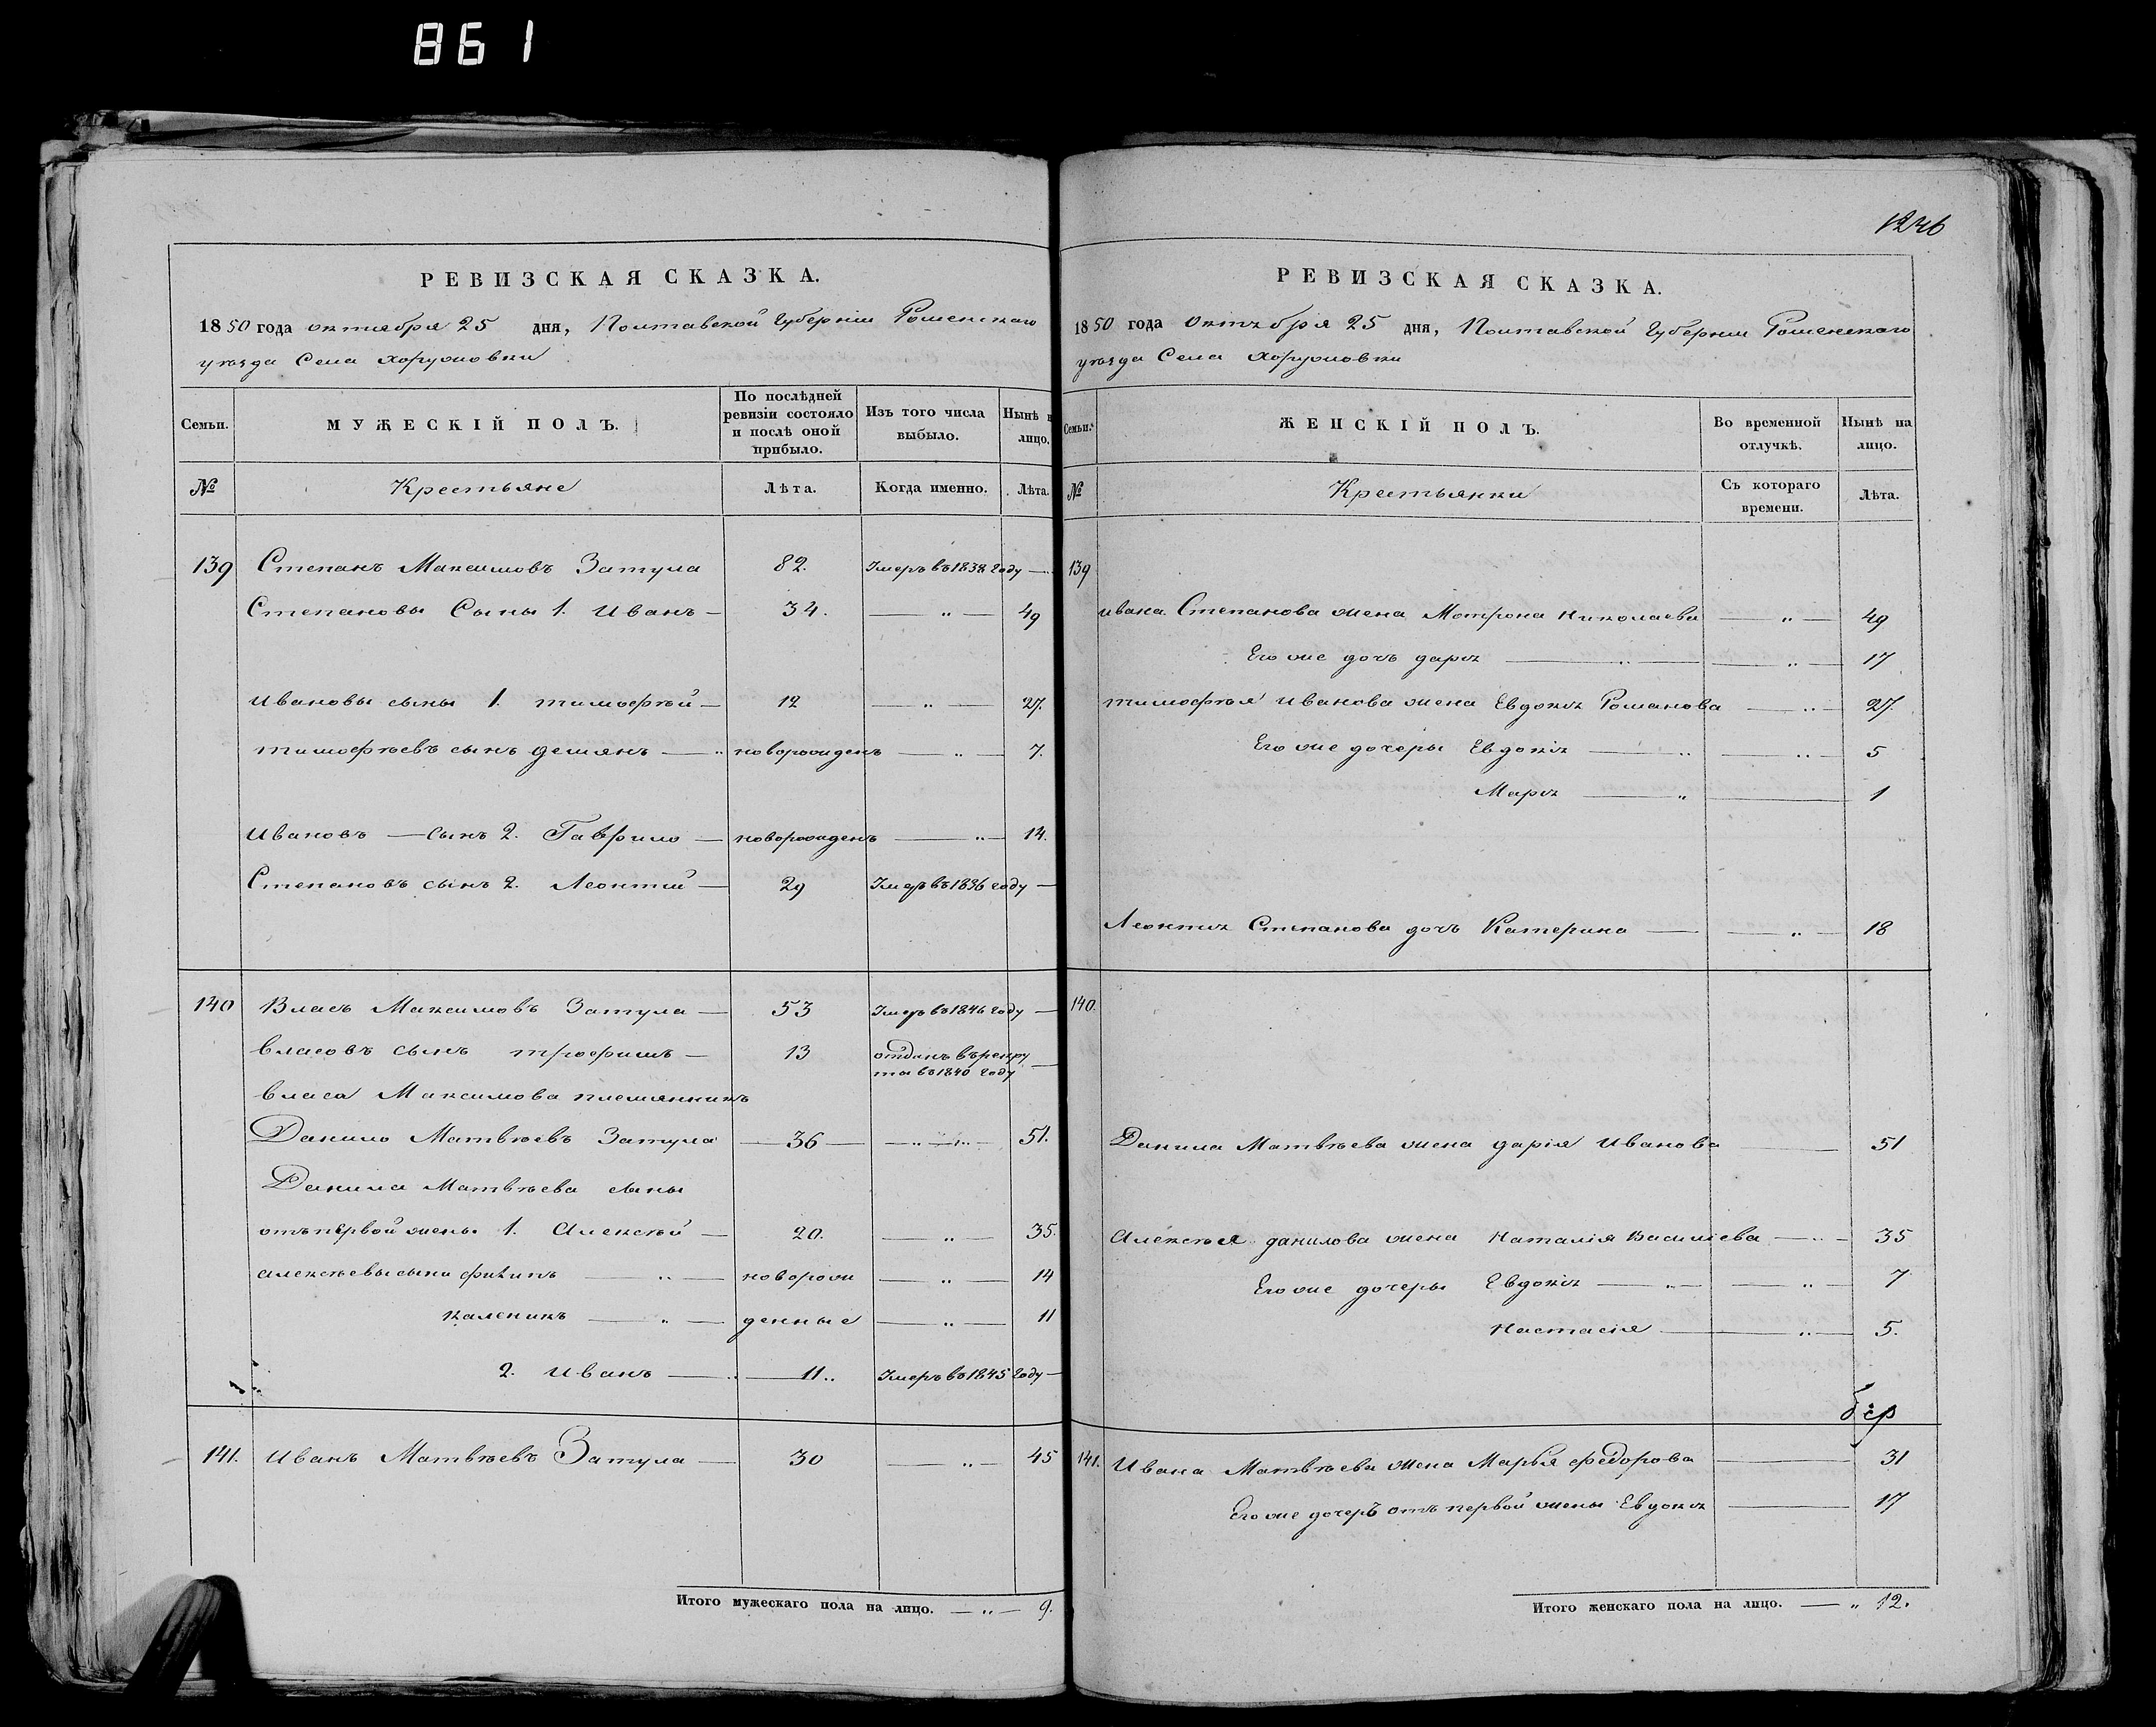 861
1246
РЕВИЗСКАЯ СКАЗКА.
1850 года октября 25 дня, Полтавской Губернии Роменскаго
уѣзда Села Хоружовки
Семьи. МУЖЕСКІЙ ПОЛЪ. По послѣдней ревизіи состояло и послѣ оной прибыло. Изъ того числа выбыло. Нынѣ н лицо.
№ Крестьяне Лѣта. Когда именно. Лѣта.
139 Степанъ Максимовъ Затула 82. Умеръ въ 1838 году
Степановы Сыны 1. Иванъ 34. 49
Ивановы сыны 1. тимофѣй 12 27.
тимофѣевъ сынъ демянъ новорожденъ 7.
Ивановъ сынъ 2. Гаврило новорожденъ 14.
Степановъ сынъ 2. Леонтий 29 Умеръ въ 1836 году
140 Власъ Максимовъ Затула 53 Умеръ въ 1846 году
власовъ сынъ трофимъ 13 отданъ въ рекру
та въ 1840 году
власа Максимова племянникъ
Данило Матвѣевъ Затула 36 51.
Данила Матвѣева сыны
отъ первой жены 1. Алексѣй 20. 35.
алексѣевы сыны филипъ новорож 14
каленикъ денные 11
2. Иванъ 11 Умеръ въ 1845 году
141. Иванъ Матвѣевъ Затула 30 45
Итого мужескаго пола на лицо. 9.
РЕВИЗСКАЯ СКАЗКА.
1850 года Октября 25 дня, Полтавской Губернии Роменскаго
уѣзда Села Хоружовки
Семьи. ЖЕНСКІЙ ПОЛЪ. Во временной отлучкѣ. Нынѣ на лицо.
№ Крестьянки Съ котораго времени. Лѣта.
139
ивана Степанова жена Мотрона Николаева 49
Его же дочь дарья 17
тимофѣя Иванова жена Евдокія Романова 27.
Его же дочеры Евдокія 5
Марія 1
Леонтія Степанова дочь Катерина 18
140.
Данила Матвѣева жена дарія Иванова 51
Алексѣя данилова жена Наталія Василіева 35
Его же дочеры Евдокія 7
Настасія 5.
141. Ивана Матвѣева жена Марья федорова 31
Его же дочерь отъ первой жены Евдокія 17
Итого женскаго пола на лицо. 12.